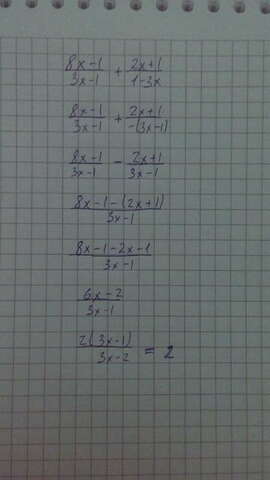 (8x-1)/(3x-1) + (2x+1)/(1-3x)
(8x-1)/(3x-1) + (2x+1)/(-(3x-1))
(8x-1)/(3x-1) - (2x+1)/(3x-1)
(8x-1-(2x+1))/(3x-1)
(8x-1-2x-1)/(3x-1)
(6x-2)/(3x-1)
(2(3x-1))/(3x-2) = 2